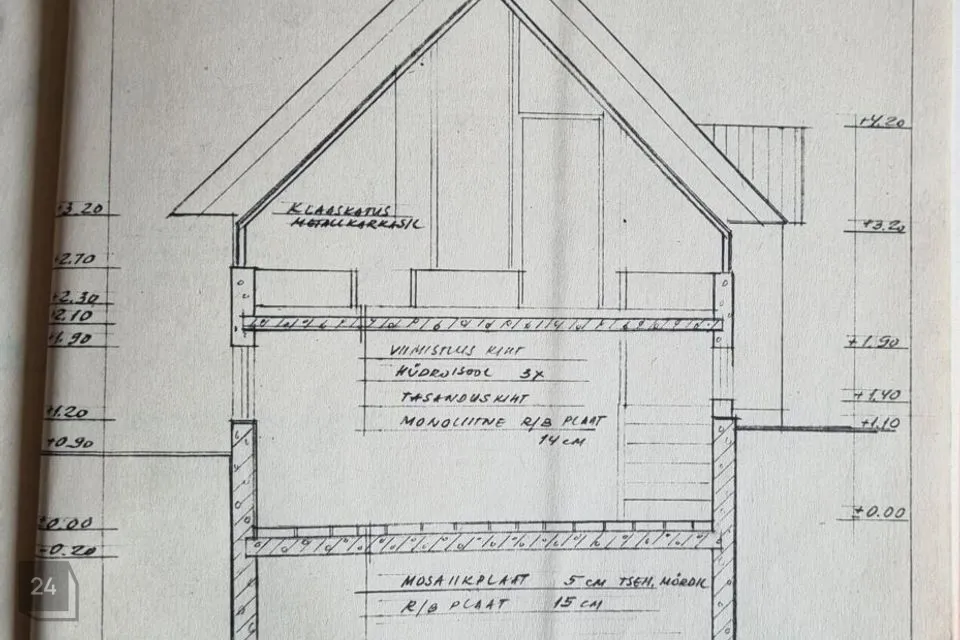 +4.20
+3.20
KLAASKATUS
METALLKARKASIL
+3.20
+2.70
+2.30
+2.10
+1.90
+1.90
VIIMISTLUS KIHT
HÜDROISOOL 3X
TASANDUSKIHT
MONOLIITNE R/B PLAAT
14 CM
+1.40
+1.20
+1.10
+0.90
±0.00
±0.00
-0.20
MOSAIIKPLAAT 5 CM TSEM. MÖRDIL
R/B PLAAT 15 CM
24